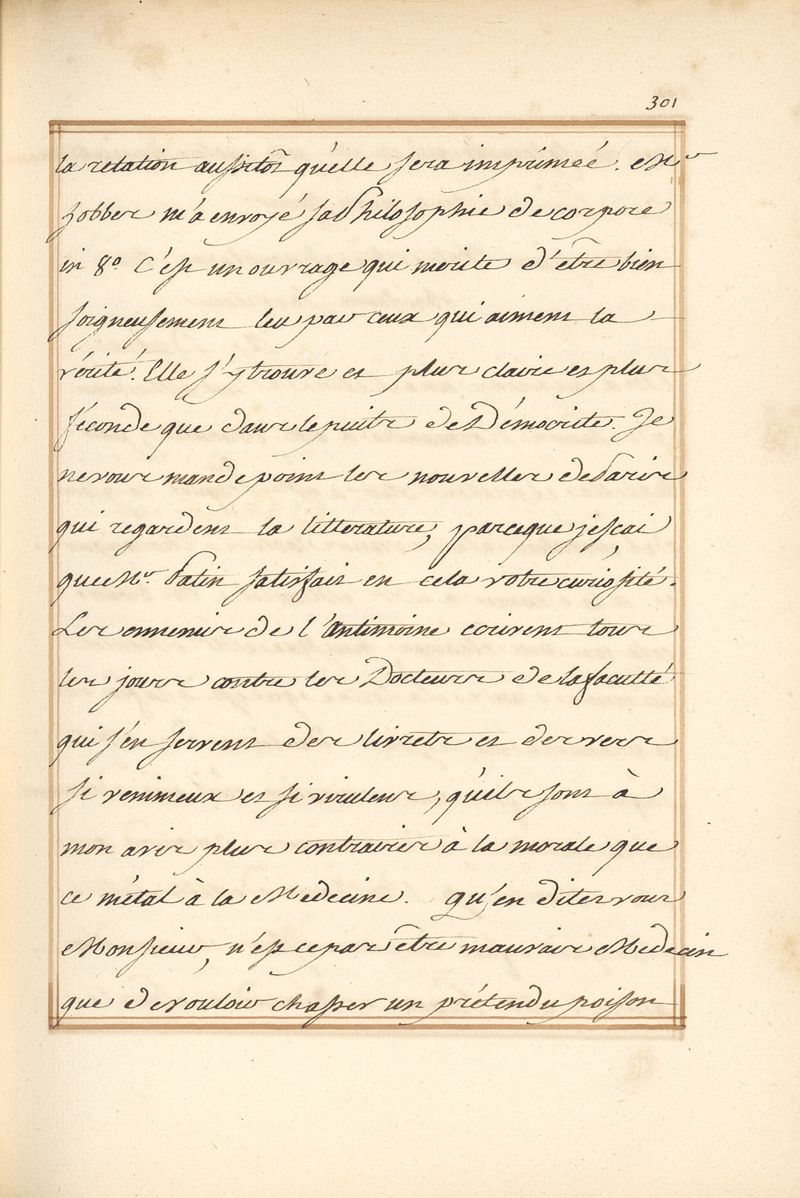 301
la relation aussitôt qu'elle sera imprimeé. Mr
hobbes m'a envoyé sa Philosophie de corpore
in 8º. C'est un ouvrage qui merite d'être bien
soigneusement leu par ceux qui aiment la
vérité. Elle s'y trouve et plus claire et plus
féconde que dans le puits de Démocrite. Je
ne vous mande point les nouvelles de Paris
qui regardent la litterature, parceque je scai
que Mr. Patin satisfait en cela votre curiosité.
Les ennemis de l'Antimoine ecrivent tous
les jours contre les Docteurs de la faculté
qui s'en servent des livrets et des vers
si venimeux et si virulens, qu'ils sont à
mon avis plus contraires à la morale que
ce métal à la Medecine. Qu'en dites vous
Monsieur, n'est ce pas être mauvais Medecin
que de vouloir chasser un prétendu poison